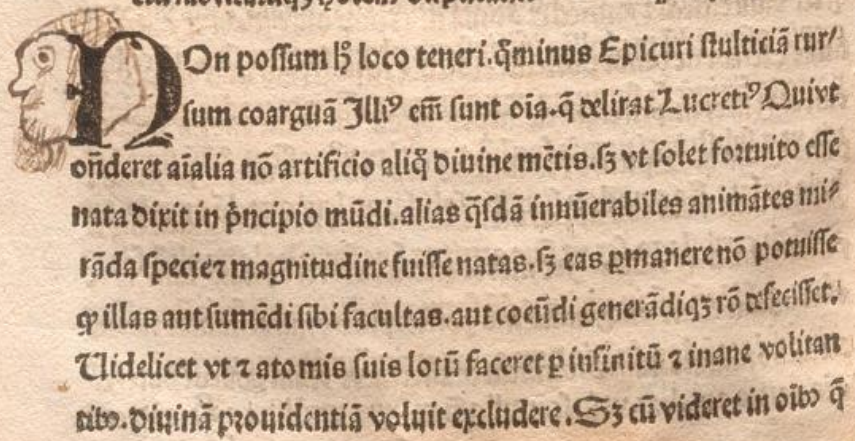 NOn possum hꝫ loco teneri.q̄minus Epicuri stulticiā rur/
sum coarguā Illiꝰ em̄ sunt oīa.q̄ delirat Lucretiꝰ Qui vt
on̄deret aīalia nō artificio aliq̄ diuine mētis.sꝫ vt solet fortuito esse
nata dixit in pͥncipio mūdi.alias q̄sdā innūerabiles animātes mi/
rāda specie ⁊ magnitudine fuisse natas.sꝫ eas ꝑmanere nō potuisse
ꝙ illas aut sumēdi sibi facultas.aut coeūdi generādiqꝫ rō defecisset.
Uidelicet vt ⁊ atomis suis locū faceret ꝑ infinitū ⁊ inane volitan
tibꝰ.diuinā prouidentiā voluit excludere.Sꝫ cū videret in oībꝰ q̄